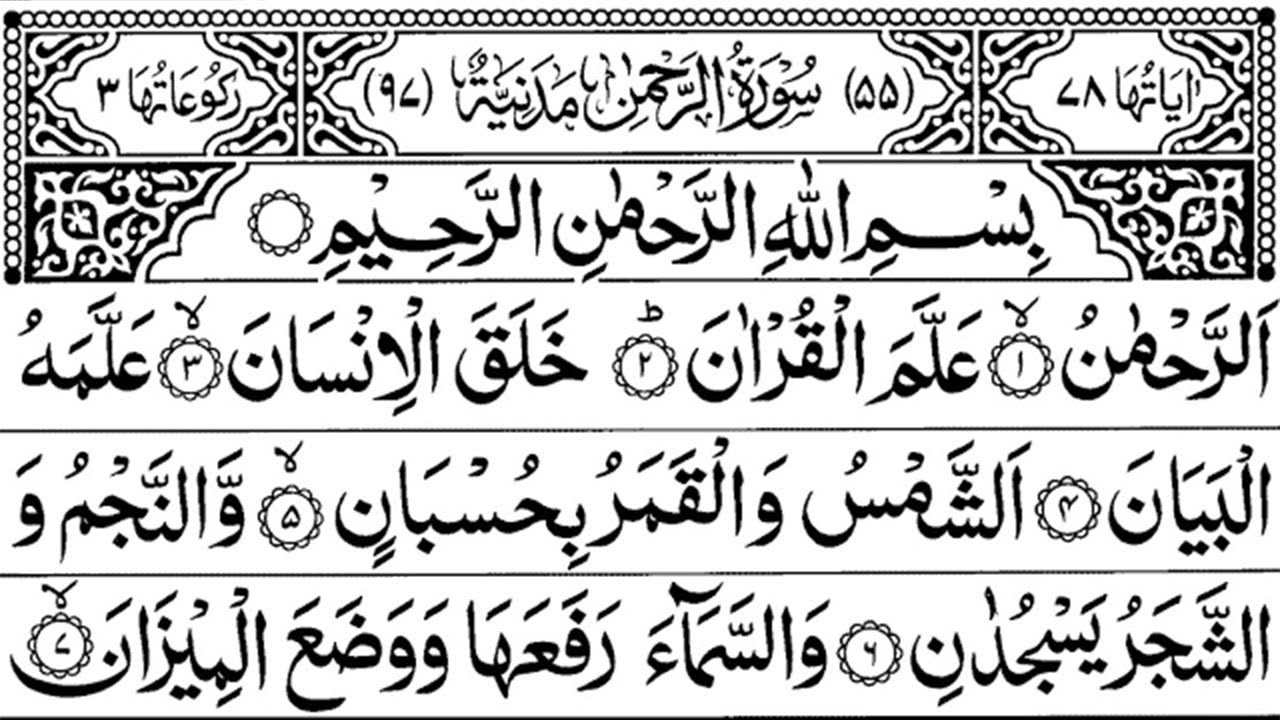 اٰيَاتُهَا ٧٨ (۵۵) سُوْرَةُ الرَّحْمٰنِ مَدَنِيَّةٌ (٩٧) رُكُوْعَاتُهَا ٣
بِسْمِ اللّٰهِ الرَّحْمٰنِ الرَّحِيْمِ
اَلرَّحْمٰنُ ۙ﴿۱﴾ عَلَّمَ الْقُرْاٰنَ ؕ﴿۲﴾ خَلَقَ الْاِنْسَانَ ۙ﴿۳﴾ عَلَّمَهُ
الْبَيَانَ ﴿۴﴾ اَلشَّمْسُ وَالْقَمَرُ بِحُسْبَانٍ ۙ﴿۵﴾ وَّالنَّجْمُ وَ
الشَّجَرُ يَسْجُدٰنِ ﴿۶﴾ وَالسَّمَآءَ رَفَعَهَا وَوَضَعَ الْمِيْزَانَ ۙ﴿۷﴾